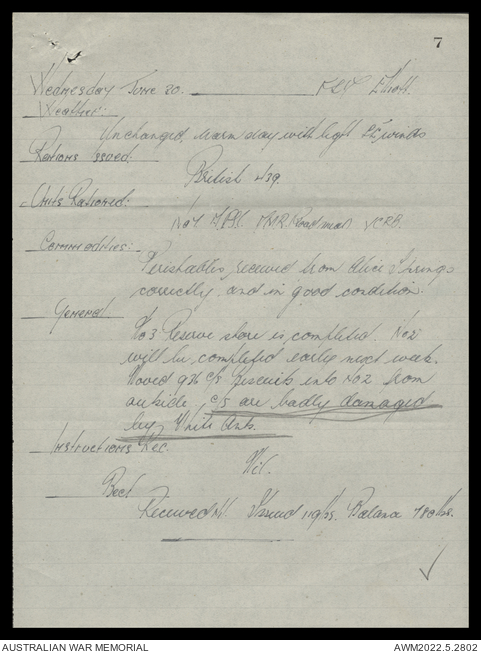 7
Wednesday June 20. FSD Elliott.
Weather:
Unchanged, warm day with light SE winds
Rations Issued.
British 439.
Units Rationed:
No 1 M.P.V. Road men CRB.
Commodities:
Perishables received from Alice Springs
correctly and in good condition.
General
No 3 Reserve store is completed. No 2
will be completed earlie next week.
Moved 936 c/s Biscuits into No 2 from
outside, c/s are badly damaged
by White Ants.
Instructions Rec.
Nil.
Beef
Received Nil. Issued 119 lbs. Balance 780 lbs.
AUSTRALIAN WAR MEMORIAL
AWM2022.5.2802